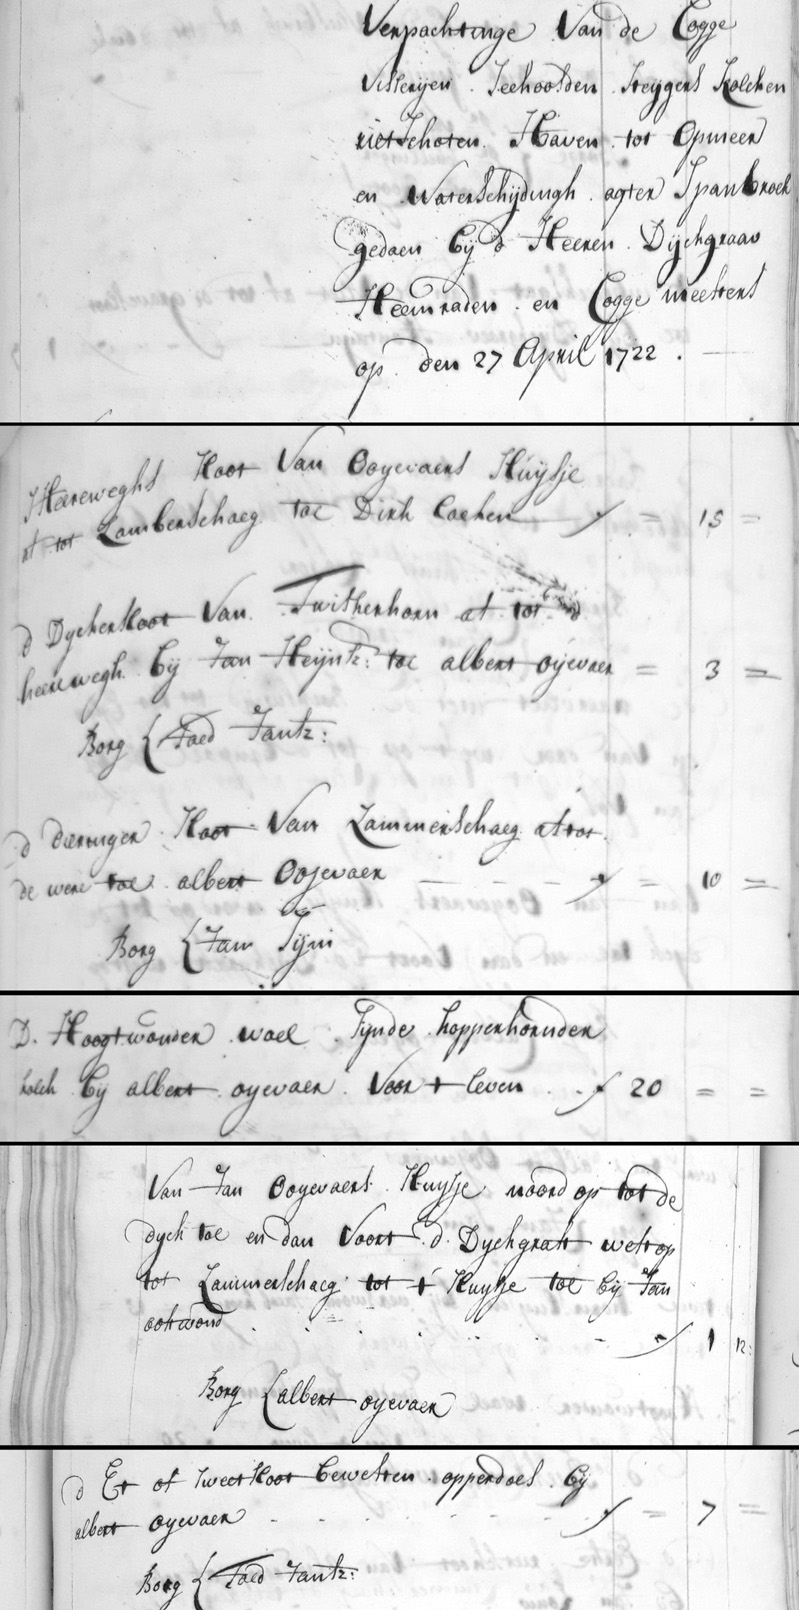 Verpachtinge Van de Cogge
Visserijen Zeehoofden Steygers Kolcken
rietschoten Haven tot Opmeer
en Waterschijdingh agter Spanbroek
gedaen bij d' Heeren Dijchgraav
Heemraden en Cogge meesters
op den 27 April 1722.
Heereweghs sloot Van Ooyevaers Huysje
af tot Lamberschaeg toe Dirk Coehen ƒ = 15 =
d' Dyckersloot Van Twitherhorn af tot d'
heerewegh bij Jan Heijntz: toe albert oijevaer = 3 =
Borg { Taed Jantz:
d' dieringer sloot Van Lammerschaeg af tot
de were toe albert Oojevaer ƒ = 10 =
Borg { Jan Tijin
D. Hoogtwouder wael Tynde hopperhornder
kolch bij albert oyevaer Voor t leven ƒ 20 = =
Van Jan Ooyevaers Huysje noord op tot de
dych toe en dan Voort d' Dychgraft west op
tot Lammerschaeg tot t' Huysje toe bij Jan
ootwoud ƒ 1 12:
Borg { albert oyevaer
d' Er of tweetsloot bewesten opperdoes bij
albert oyevaer ƒ = 7 =
Borg { Taed Jantz: